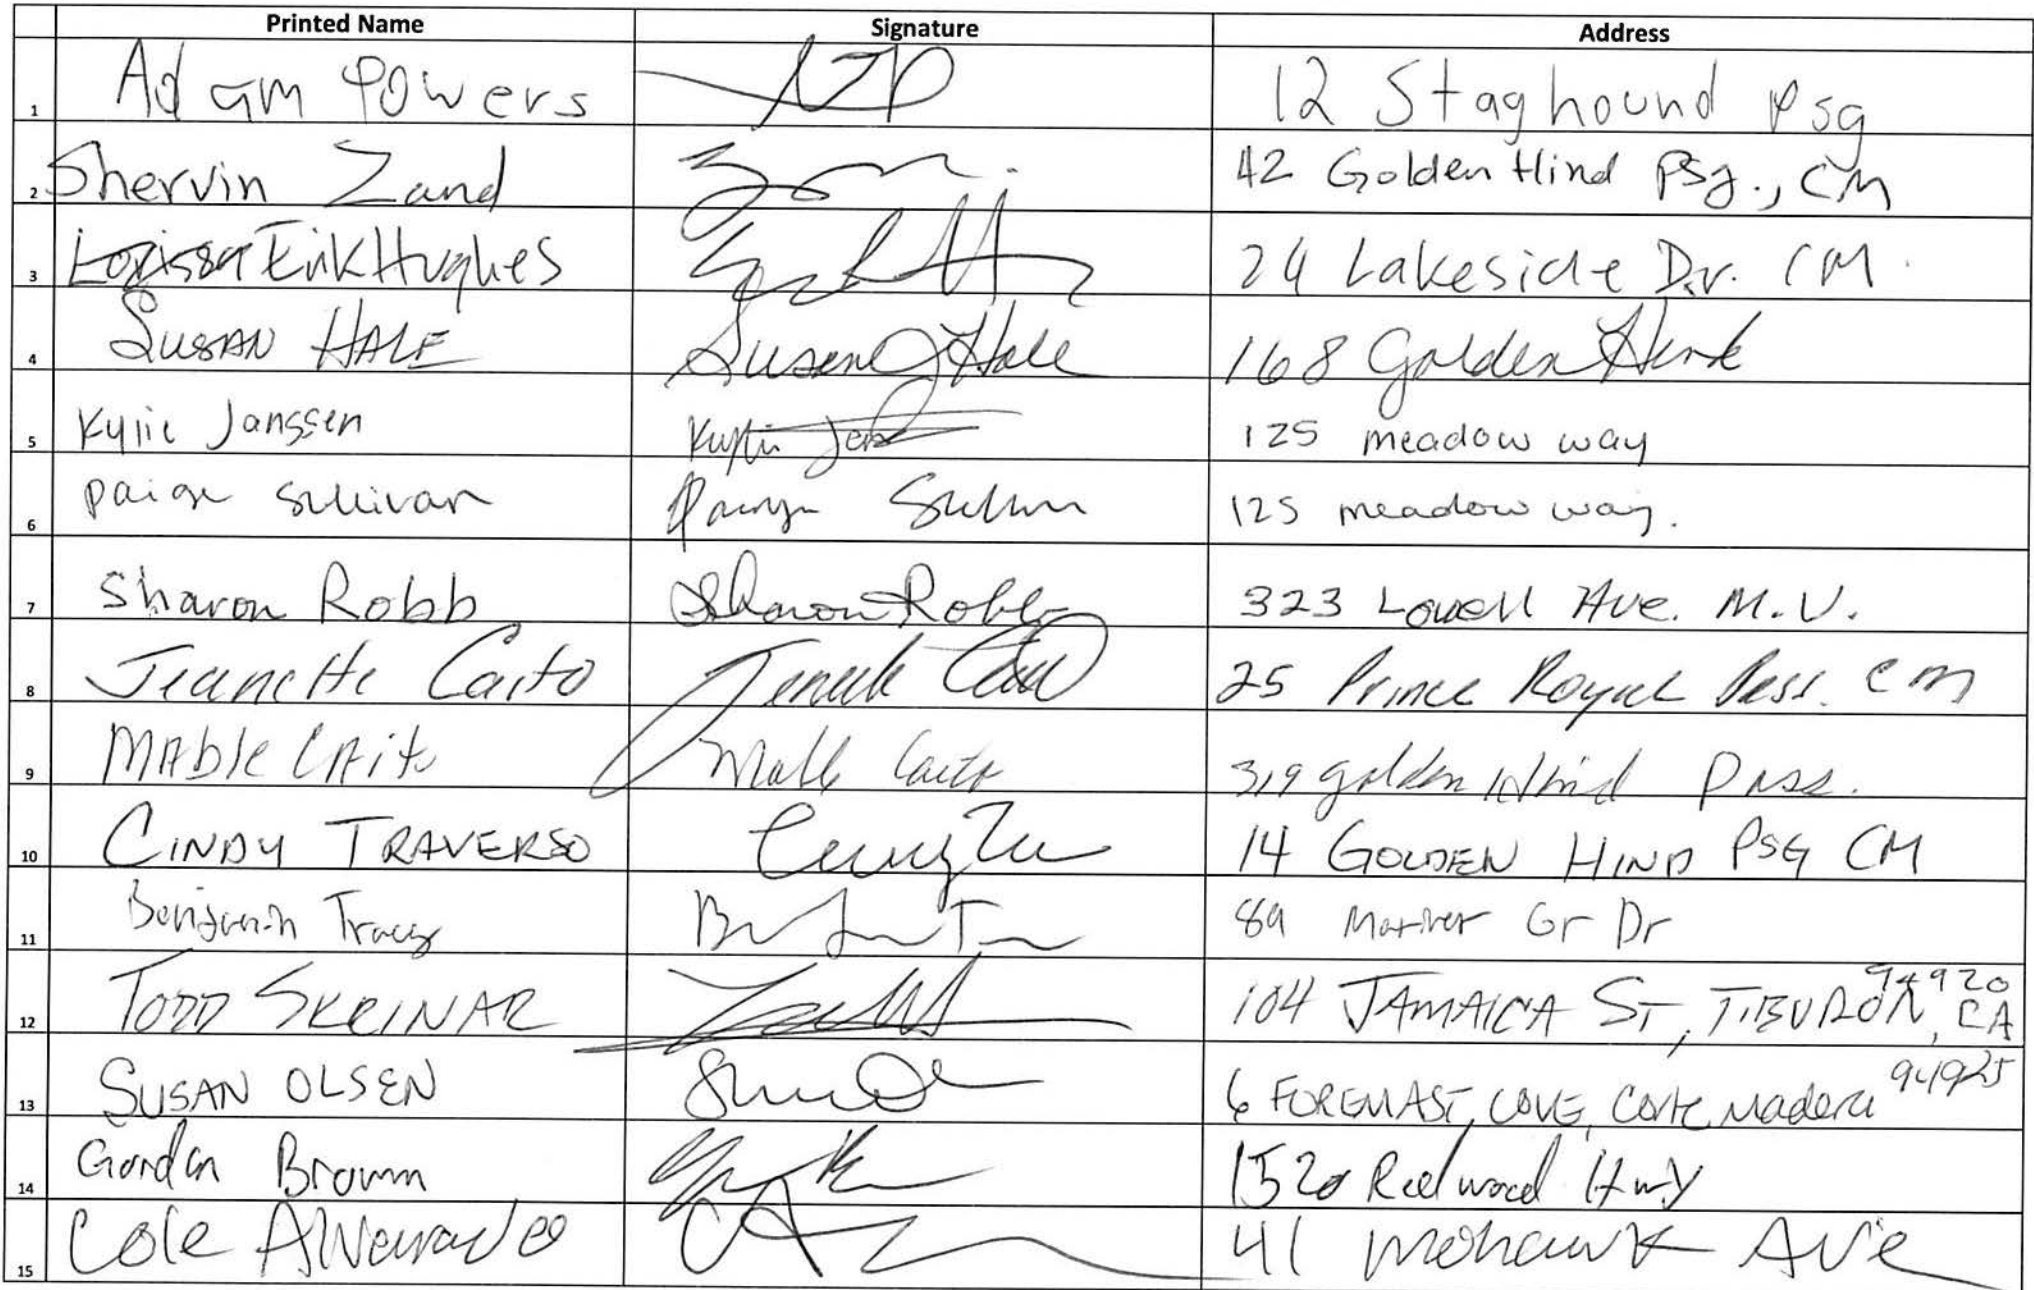 Printed Name Signature Address
1 Adam Powers 12 Staghound Psg
2 Shervin Zand 42 Golden Hind Psg., CM
3 Erik Hughes 24 Lakeside Dr. CM.
4 SUSAN HALE Susan J Hale 168 Golden Hind
5 Kylie Janssen 125 meadow way
6 paige sullivan 125 meadow way.
7 Sharon Robb Sharon Robb 323 Lowell Ave. M.V.
8 Jeanette Caito 25 Prince Royal Pass. CM
9 MAble CAito Mable Caito 319 golden Hind Pass.
10 CINDY TRAVERSO 14 GOLDEN HIND PSG CM
11 Benjamin Tracy Mariner Gr Dr
12 TODD SKRINAR 104 JAMAICA ST, TIBURON, CA 94920
13 SUSAN OLSEN 6 FOREMAST COVE, Corte Madera 94925
14 Gordon Brown 1520 Redwood Hwy
15 Cole Alvarado 41 Mohawk Ave